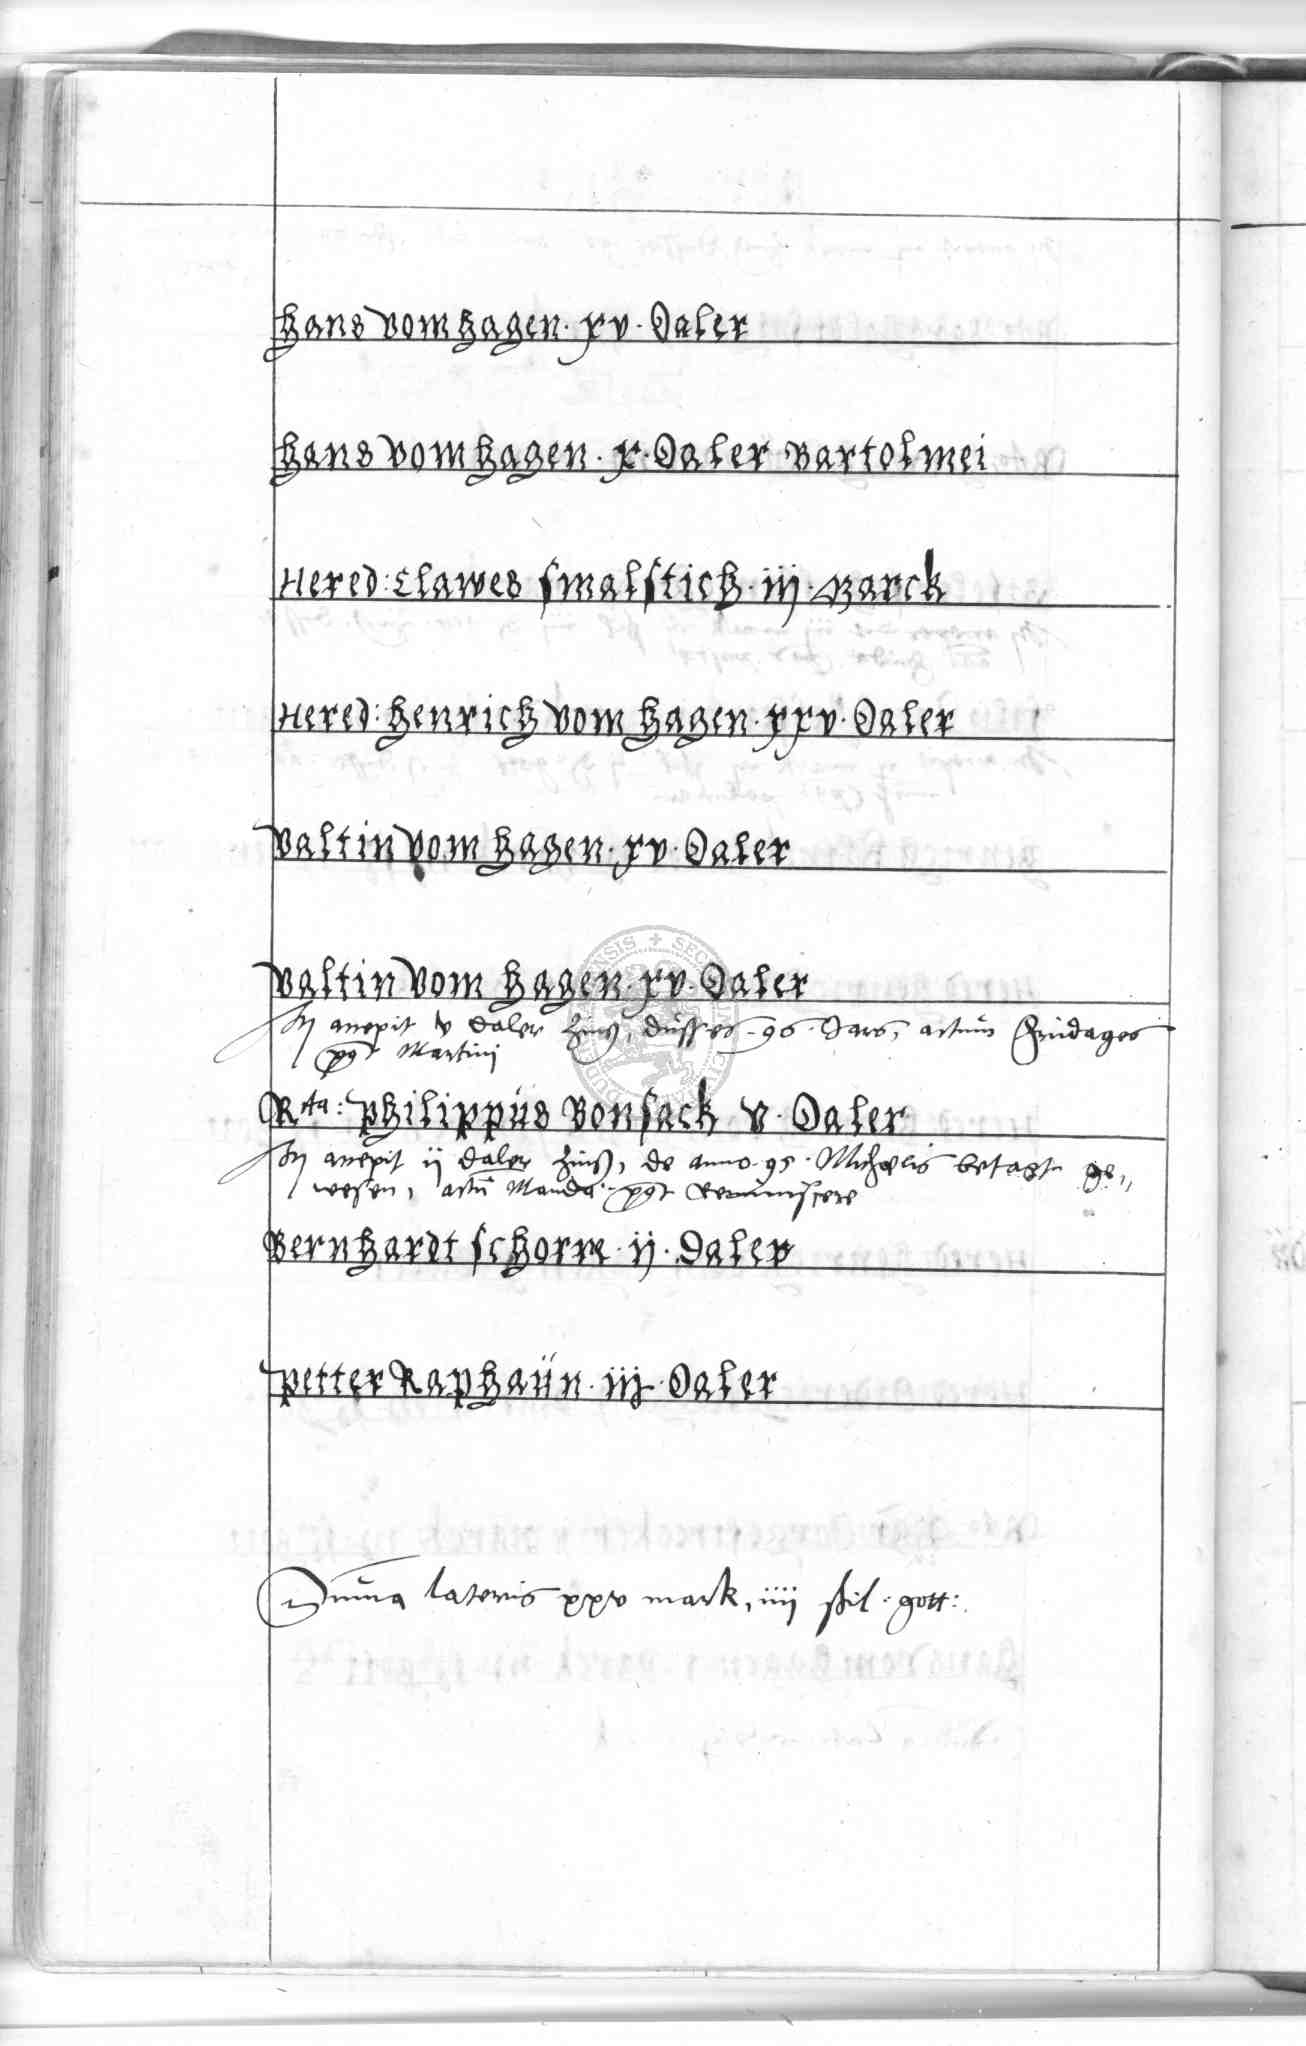 Hans vom Hagen · xv · Daler
Hans vom Hagen · x · Daler Bartolmei
Hered: Clawes smalstich · iij · Marck
Hered: Henrich vom Hagen · xxv · Daler
Valtin vom Hagen · xv · Daler
Valtin vom Hagen · xv · Daler
accepit v daler Zinß, dusses · 96 · Jars, actum Fridages
post Martini
Rta: Philippus Bonsack v · Daler
accepit ij daler Zinß, de anno · 95 · Michaelis betagt ge,,
wesen, actu Manda: post Reminiscere
Bernhardt schorre · ij · Daler
Petter Raphaün · iij · Daler
Summa lateris xxv mark, iiii ßil · gott: